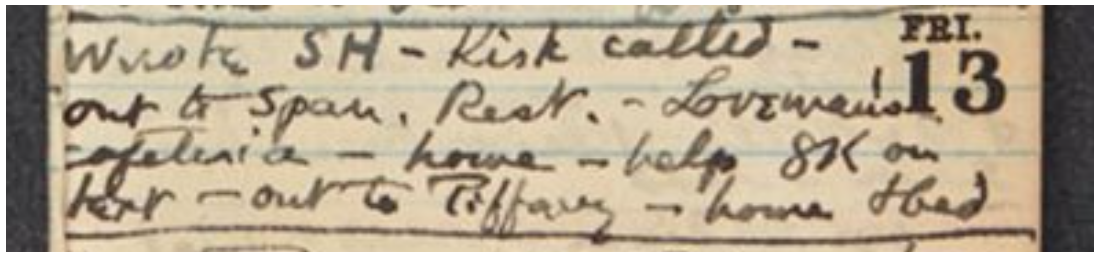 Wrote SH – Kirk called – FRI.
out to Span. Rest. – Loveman's 13
cafeteria – home – help GK on
text – out to Tiffany – home & bed